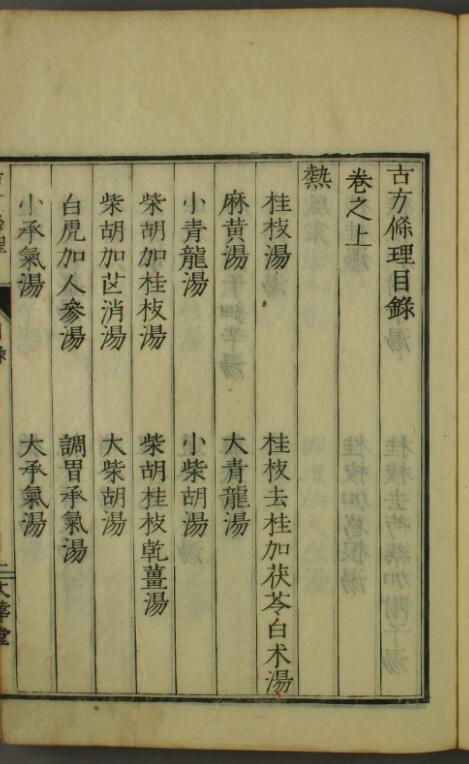 古方條理目錄
卷之上
熱
桂枝湯 桂枝去桂加茯苓白术湯
麻黃湯 大青龍湯
小青龍湯 小柴胡湯
柴胡加桂枝湯 柴胡桂枝乾薑湯
柴胡加芒消湯 大柴胡湯
白虎加人參湯 調胃承氣湯
小承氣湯 大承氣湯